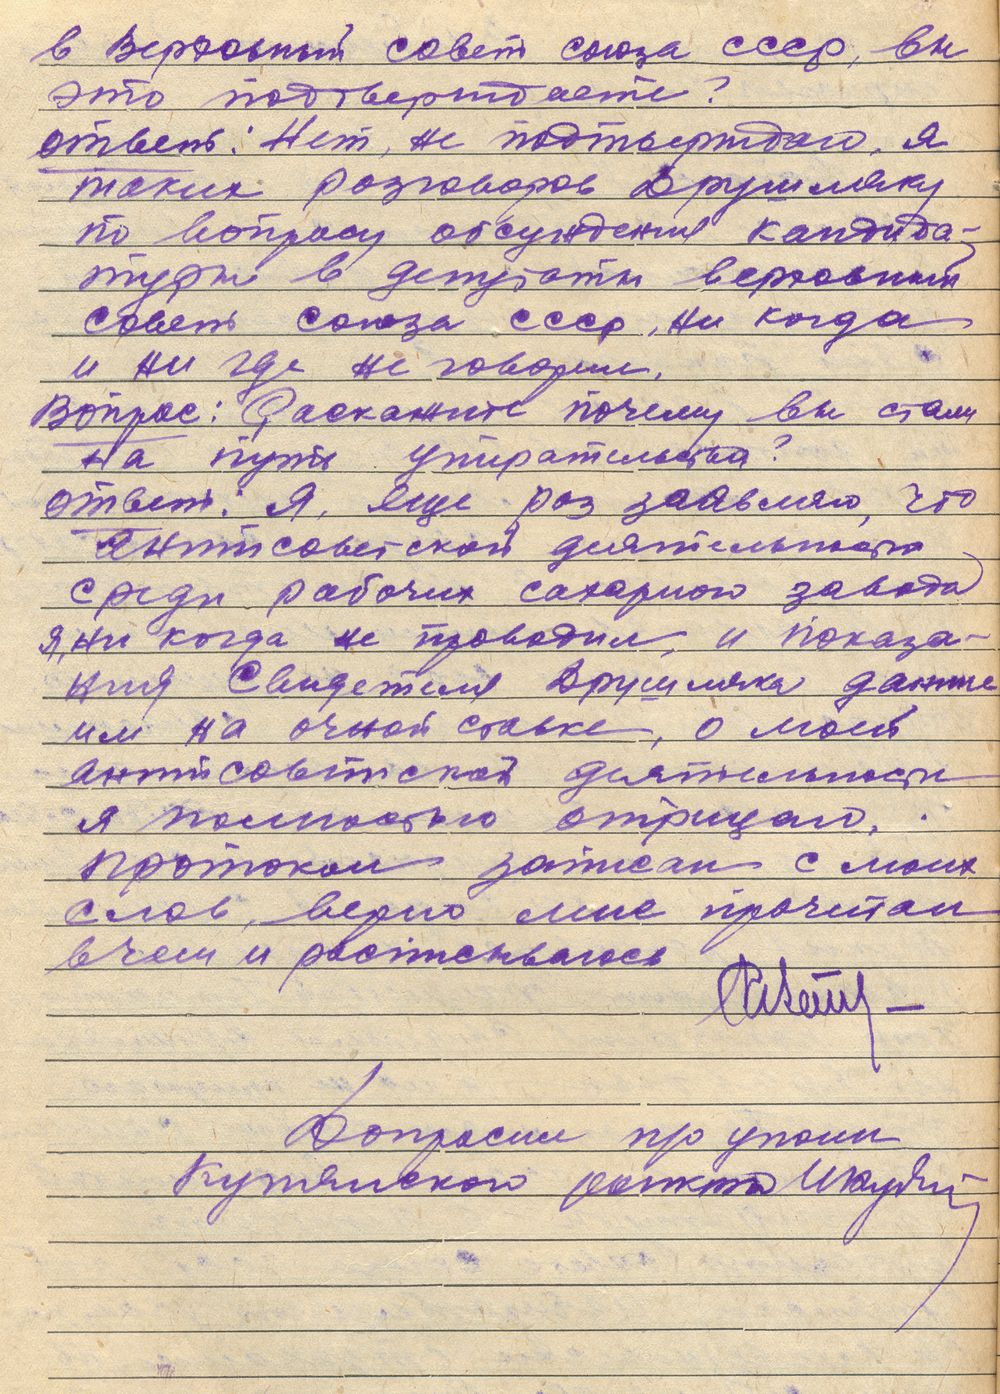 в Верховный совет союза СССР, вы
это подтверждаете?
ответ: Нет, не подтверждаю, я
таких разговоров Друшляку
по вопросу обсуждения кандида-
туры в депутаты верховный
совет союза СССР, ни когда
и ни где не говорил.
Вопрос: Раскажите почему вы стали
на путь упирательства?
ответ: Я, еще раз заявляю, что
антисоветской деятельности
среди рабочих сахарного завода
я, ни когда не проводил, и показа-
ния Свидетеля Друшляка данные
им на очной ставке, о моей
антисоветской деятельности
я полностью отрицаю.
Протокол записан с моих
слов, верно мне прочитан
в чем и расписываюсь
Допросил
Купянского